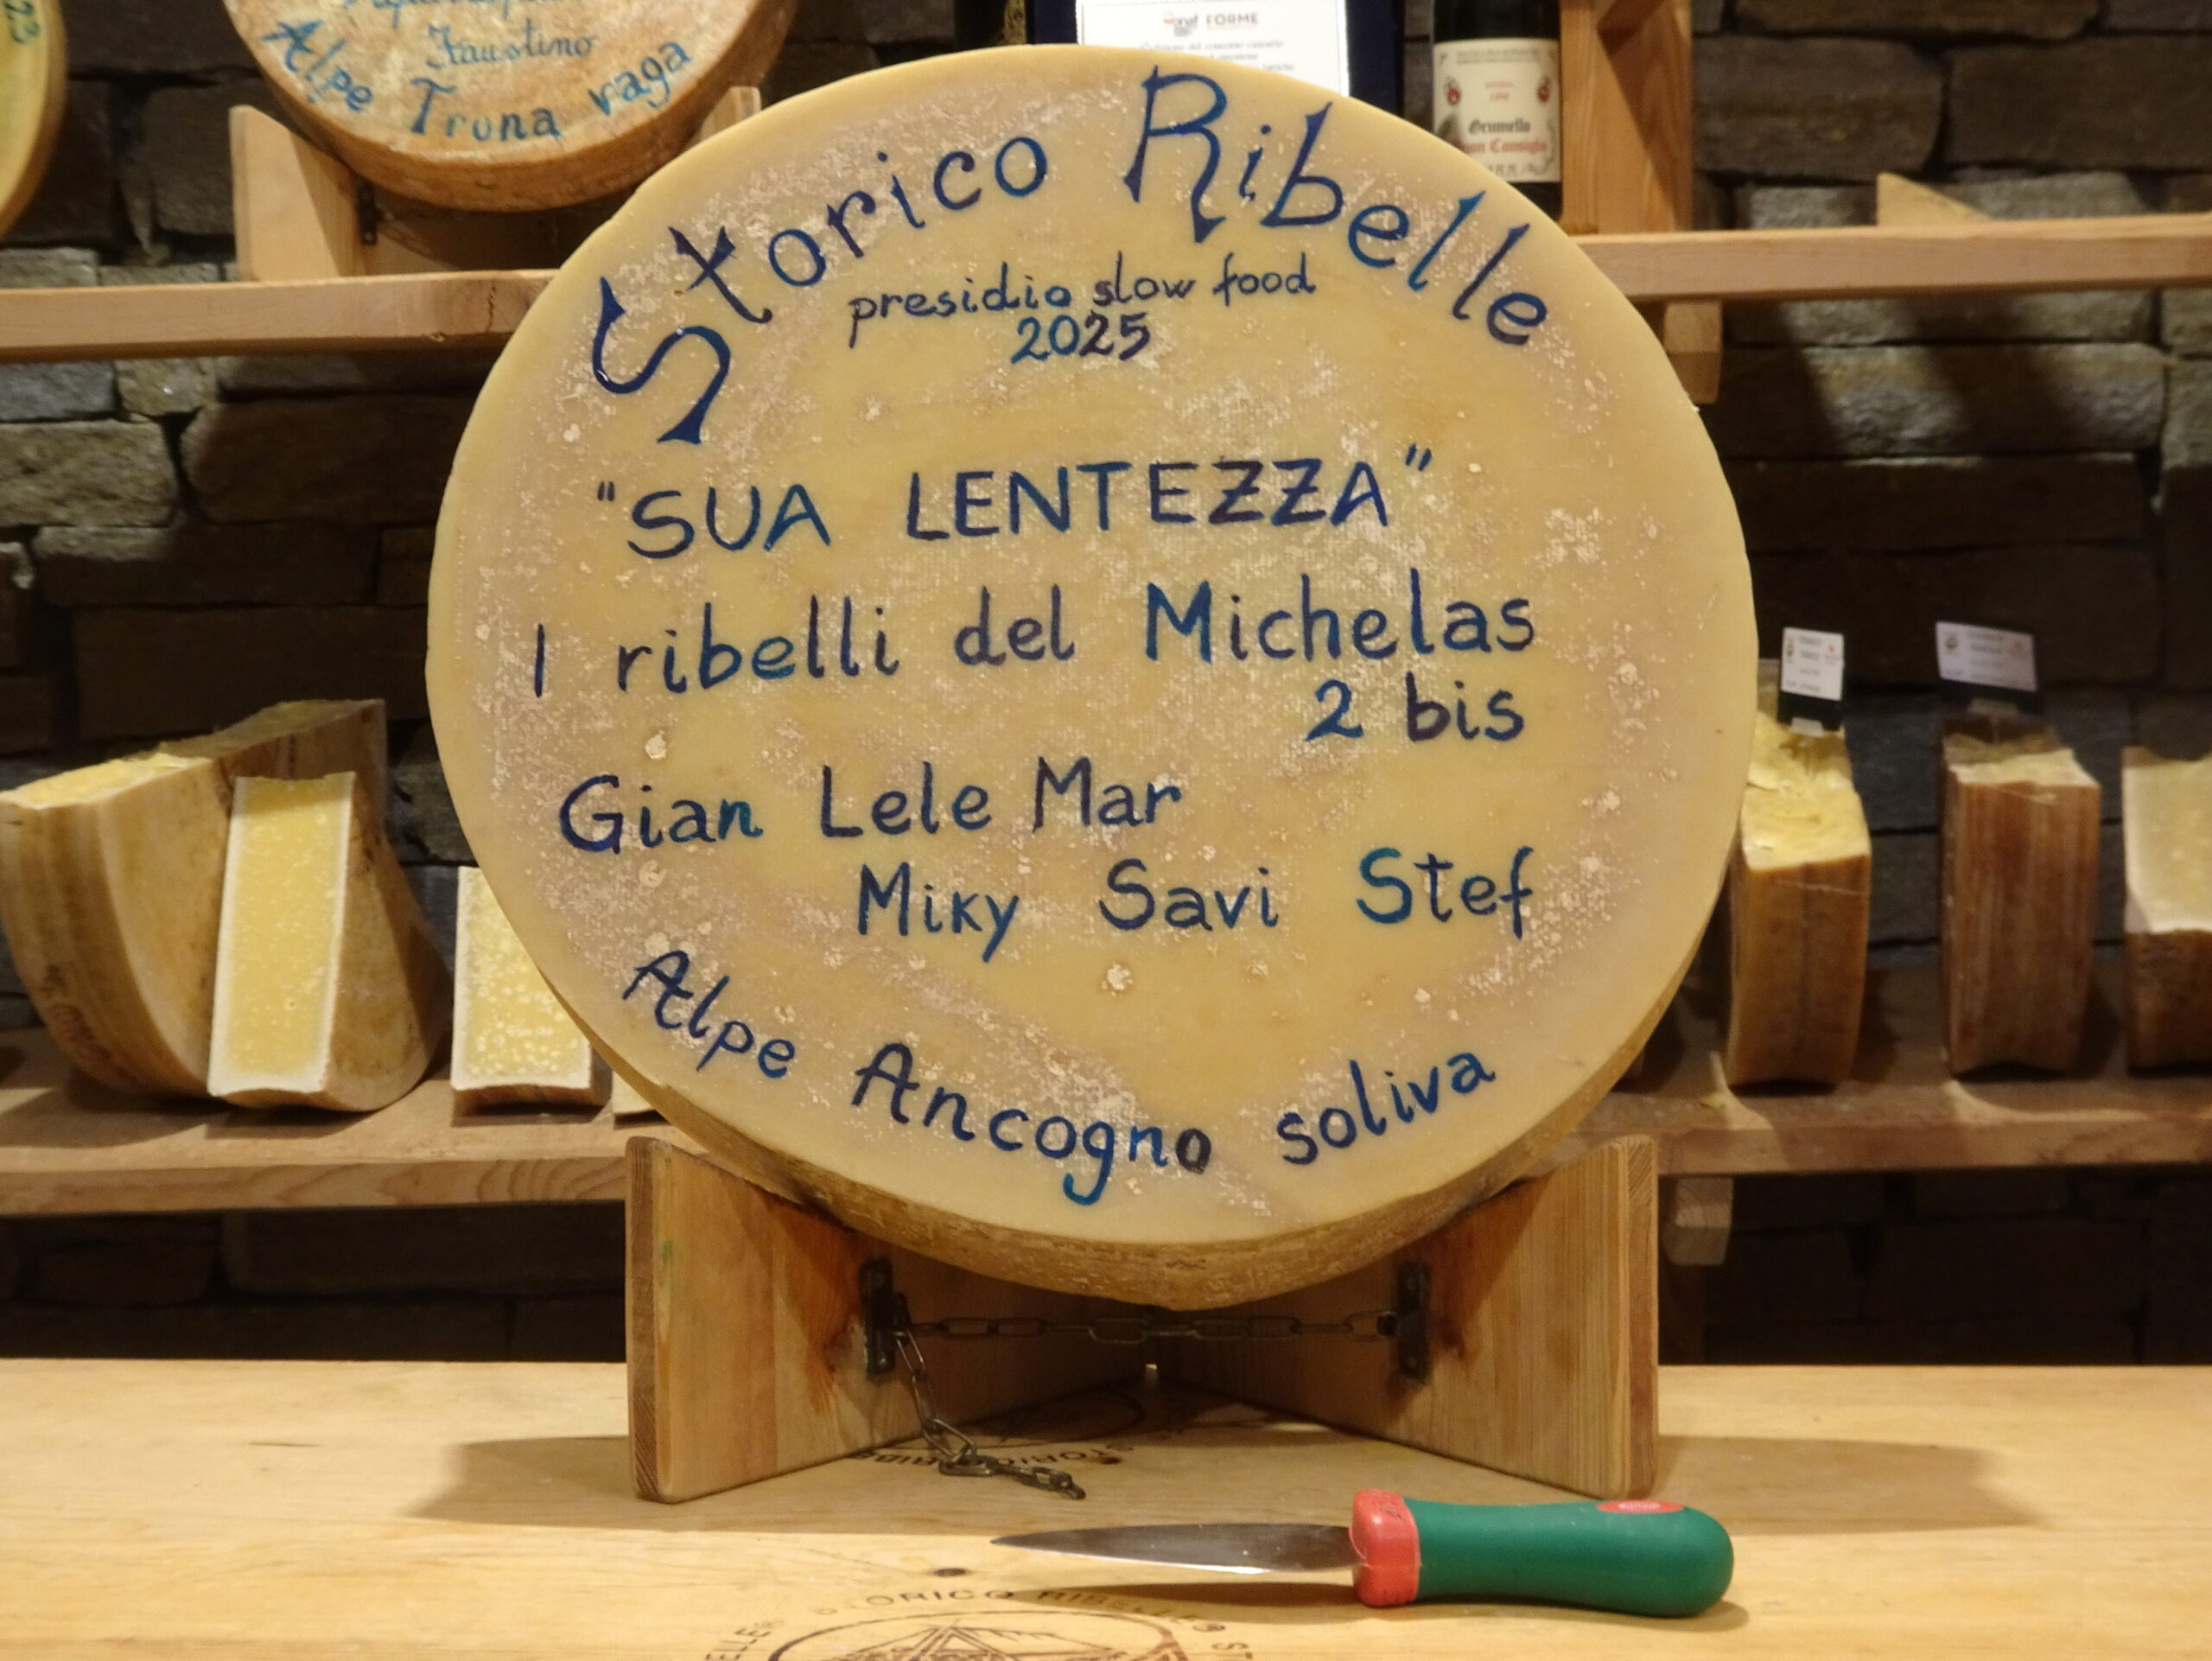 Faustino
Alpe Trona vaga
FORME
Grumello
Storico Ribelle
presidio slow food
2025
"SUA LENTEZZA"
I ribelli del Michelas
2 bis
Gian Lele Mar
Miky Savi Stef
Alpe Ancogno soliva
STORICO RIBELLE